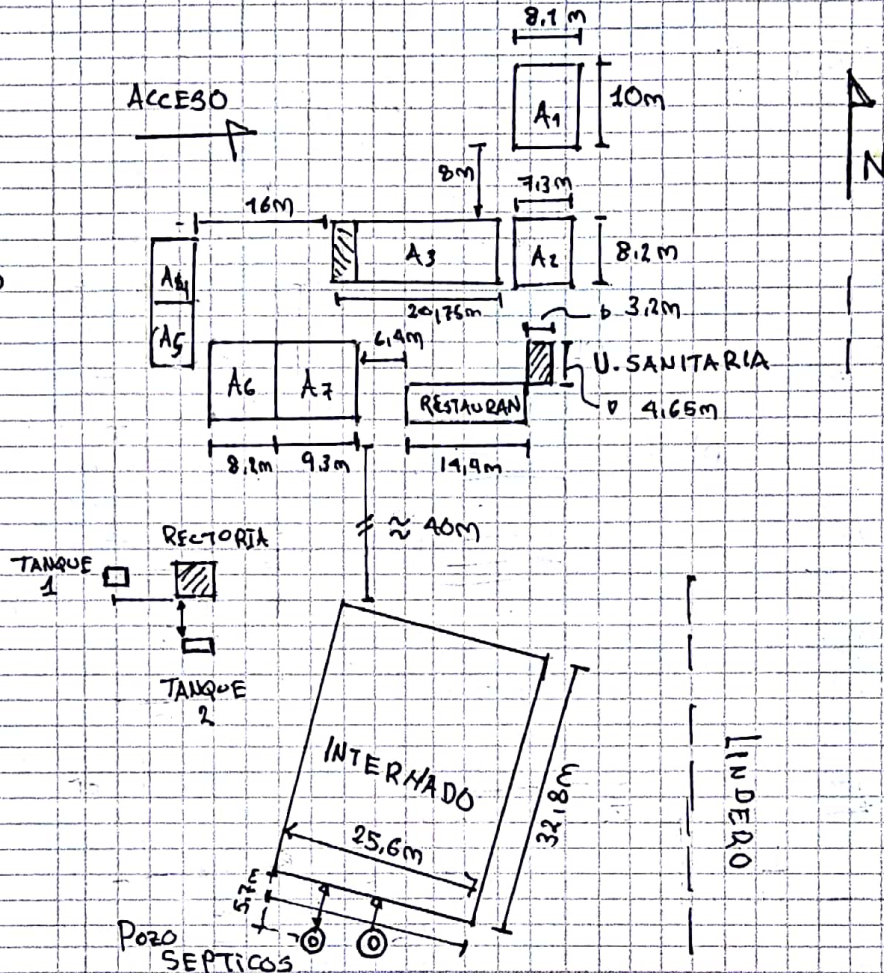 8,1 m
ACCESO
A1
10m
N
8m
7,3m
16m
A3
A2
8,2m
A4
A5
20,75m
3,2m
6,4m
U. SANITARIA
A6
A7
RESTAURAN
4,65m
8,2m
9,3m
14,4m
≈ 40m
RECTORIA
TANQUE
1
TANQUE
2
INTERNADO
LINDERO
32,8m
25,6m
POZO
SEPTICOS